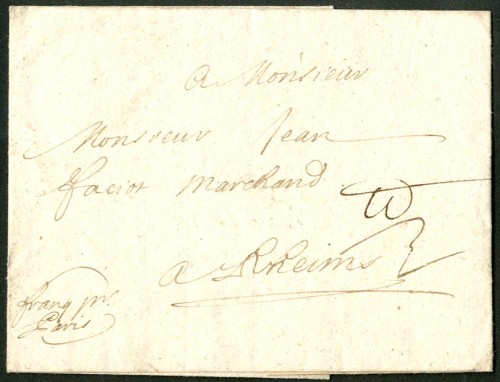 A Monsieur
Monsieur Jean
faciot Marchand
a Rheims
franq pr.
Paris